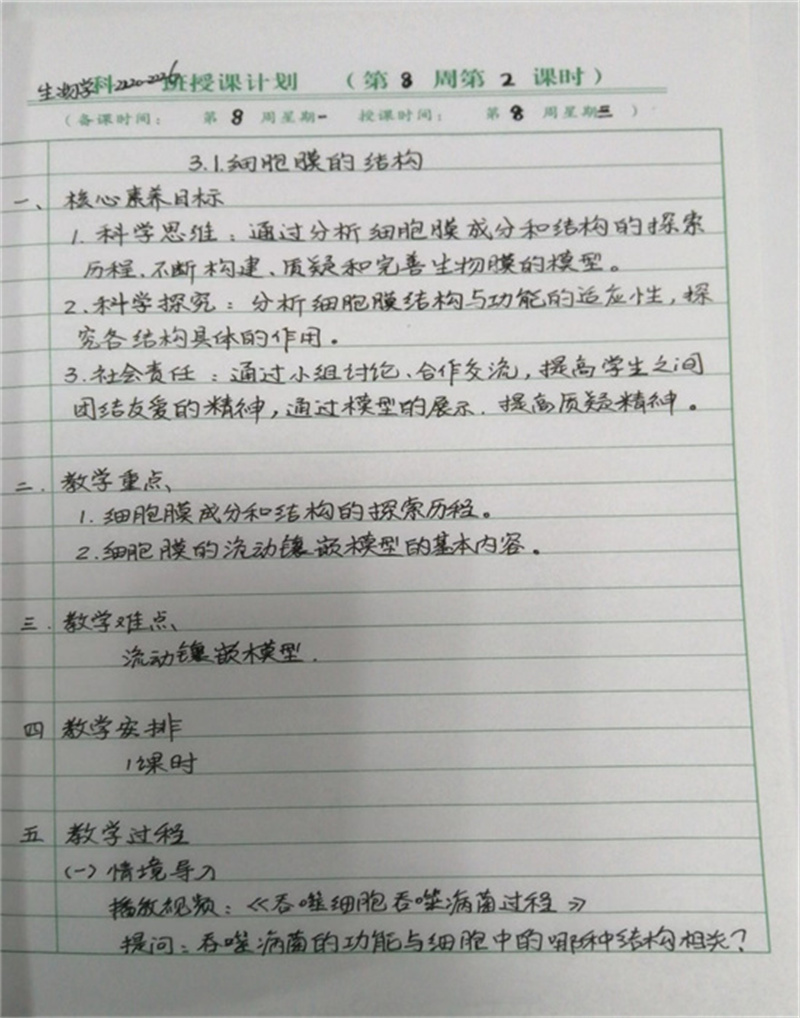 生物学科2220-2226班授课计划 (第8周第2课时)
(备课时间: 第8周星期一 授课时间: 第8周星期三)
3.1.细胞膜的结构
一、核心素养目标
1.科学思维:通过分析细胞膜成分和结构的探索
历程、不断构建、质疑和完善生物膜的模型。
2.科学探究:分析细胞膜结构与功能的适应性,探
究各结构具体的作用。
3.社会责任:通过小组讨论、合作交流,提高学生之间
团结友爱的精神,通过模型的展示.提高质疑精神。
二.教学重点
1.细胞膜成分和结构的探索历程。
2.细胞膜的流动镶嵌模型的基本内容。
三.教学难点
流动镶嵌模型.
四 教学安排
1课时
五 教学过程
(一)情境导入
播放视频:《吞噬细胞吞噬病菌过程》
提问:吞噬病菌的功能与细胞中的哪种结构相关?